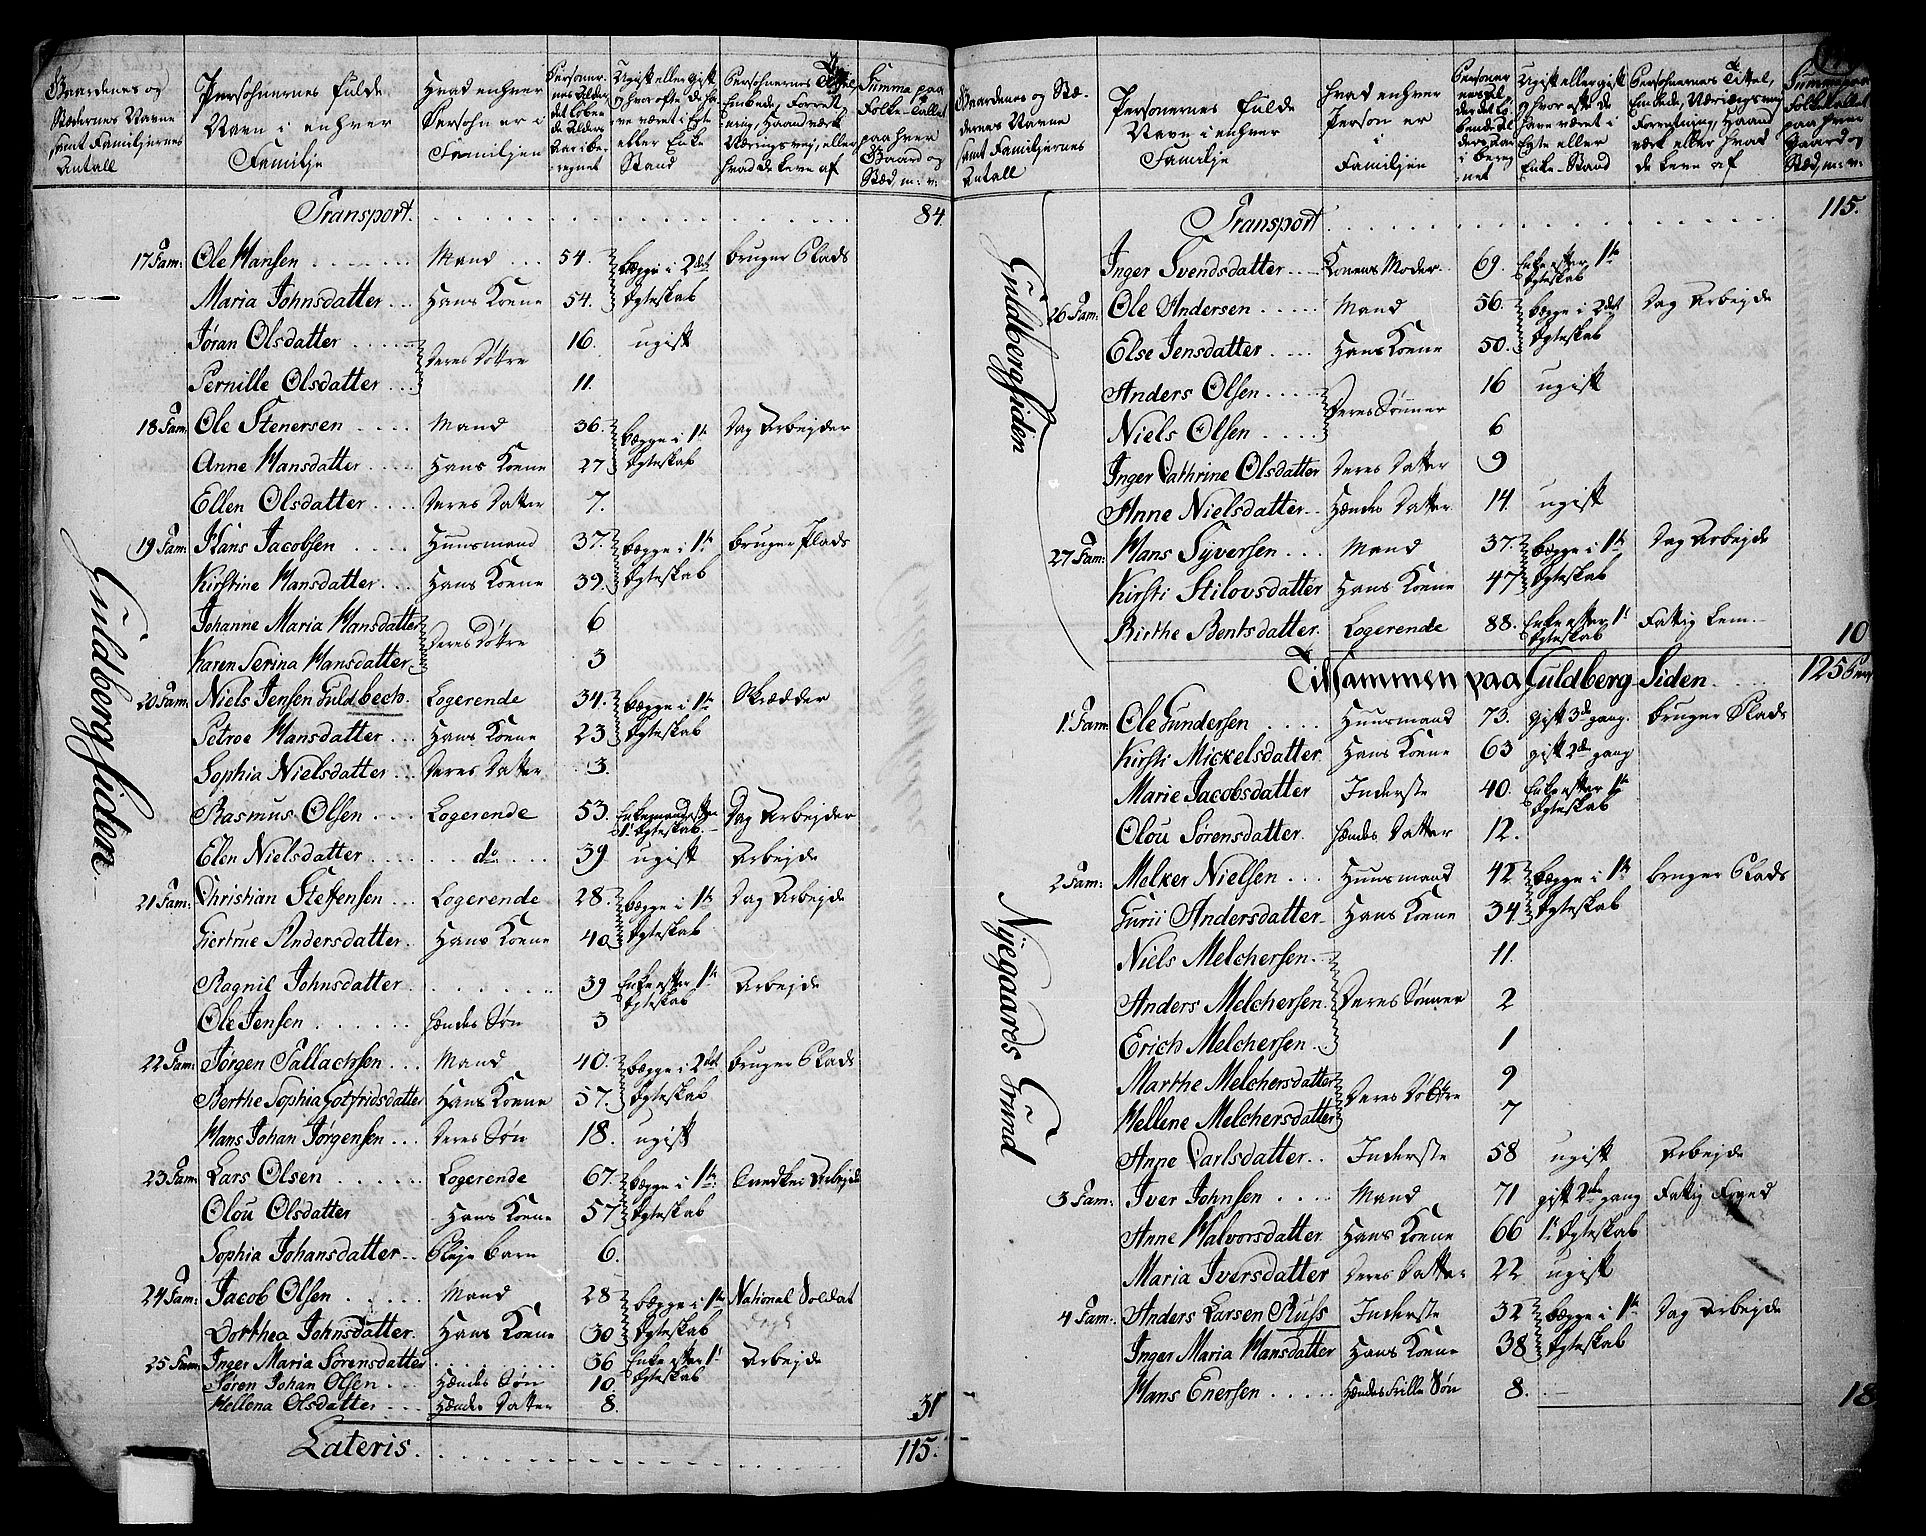 Gaardenes og Stædernes Navne samt Familjernes Antall | Persohnernes fulde Navn i enhver Familje | Hvad enhver Persohn er i Familjen | Personernes Alder det løbende Alders Aar iberegnet | Ugift eller gift og hvor ofte de have været i Egte eller Enke Stand | Persohnernes Tittel, Embede, Forretning, Haandværk Næringsvej, eller hvad de leve af | Summa paa Folke-Tallet paa hver Gaard og Stæd m: v:
Transport. 84
Guldbergsiden
17 Fam: Ole Hansen Mand 54. begge i 2det Egteskab bruger Plads
Maria Johnsdatter Hans Kone 54.
Jøran Olsdatter Deres Døttre 16. ugift
Pernille Olsdatter 11.
18 Fam: Ole Stenersen Mand 36. begge i 1te Egteskab Dag Arbejder
Anne Hansdatter Hans Kone 27
Ellen Olsdatter Deres Datter 7.
19 Fam: Hans Jacobsen Huusmand 37. begge i 1te Egteskab bruger Plads
Kirstine Hansdatter Hans Kone 39.
Johanne Maria Hansdatter Deres Døttre 6
Karen Serina Hansdatter 3
20 Fam: Niels Jensen Guldbech. Logerende 34. begge i 1te Egteskab Skrædder
Petroe Hansdatter Hans Kone 23
Sophia Nielsdatter Deres Datter 3.
Rasmus Olsen Logerende 53. Enkemand efter 1te Egteskab Dag Arbejder
Elen Nielsdatter do 39 ugift Arbejde
21 Fam: Christian Steffensen Logerende 28. begge i 1te Egteskab Dag Arbejde
Giertrue Andersdatter Hans Kone 40.
Ragnil Johnsdatter 39 Enke efter 1te Egteskab Arbejde
Ole Jensen Hendes Søn 3
22 Fam: Jørgen Tallachsen Mand 40. begge i 2det Egteskab bruger Plads
Berthe Sophia Gotfridsdatter Hans Kone 57.
Hans Johan Jørgensen Deres Søn 18. ugift
23 Fam: Lars Olsen Logerende 67. begge i 1te Egteskab Arbejde
Olou Olsdatter Hans Kone 57
Sophia Johansdatter Pleje barn 6.
24 Fam: Jacob Olsen Mand 28 begge i 1te Egteskab National Soldat
Dorthea Johnsdatter Hans Kone 30
25 Fam: Inger Maria Sørensdatter 36 Enke efter 1te Egteskab Arbejde
Søren Johan Olsen Hendes Søn 10.
Hellena Olsdatter Hendes Datter 8. 31
Lateris. 115.
Gaardenes og Stædernes Navne samt Familjernes Antall | Personernes fulde Navn i enhver Familje | Hvad enhver Person er i Familjen | Personernes Alder det løbende Alders Aar iberegnet | Ugift eller gift og hvor ofte de have været i Egte eller Enke-Stand | Persohnernes Tittel, Embede, Næringsvej Forretning, Haandværk eller hvad de leve af | Summa paa Folketallet paa hver Gaard og Stæd m: v:
Transport 115.
Guldbergsiden
Inger Svendsdatter Konens Moder 69. Enke efter 1te Egteskab
26 Fam: Ole Andersen Mand 56. begge i 2det Egteskab Dag Arbejde
Else Jensdatter Hans Kone 50.
Anders Olsen Deres Sønner 16 ugift
Niels Olsen 6
Inger Cathrine Olsdatter Deres Datter 9
Anne Nielsdatter Hendes Datter 14. ugift
27 Fam: Hans Syversen Mand 37. begge i 1te Egteskab Dag Arbejde
Kirsti Stilovsdatter Hans Kone 47
Birthe Bentsdatter. Logerende 88. Enke efter 1te Egteskab Fattig Lem 10
Tilsammen paa Guldberg-Siden 125
Nyegaards Grund
1 Fam: Ole Gundersen Huusmand 73. gift 3de gang. bruger Plads
Kirsti Mickelsdatter Hans Kone 63 gift 2den gang
Marie Jacobsdatter Inderste 40. Enke efter 1te Egteskab
Olou Sørensdatter. Hendes Datter 12.
2 Fam: Melker Nielsen Huusmand 42 begge i 1te Egteskab bruger Plads
Gurii Andersdatter Hans Kone 34
Niels Melchersen. Deres Sønner 11.
Anders Melchersen. 2
Erich Melchersen. 1
Marthe Melchersdatter Deres Døttre 9
Hellene Melchersdatter 7
Anne Carlsdatter Inderste 58 ugift Arbejde
3 Fam: Iver Johnsen Mand 71 gift 2den gang Fattig
Anne Halvorsdatter Hans Kone 66 1te Egteskab
Maria Iversdatter Deres Datter 22 ugift
4 Fam: Anders Larsen Russ Inderste 32 begge i 1te Egteskab Dag Arbejde
Inger Maria Hansdatter Hans Kone 38
Hans Enersen Hendes Frille Søn 8. 18